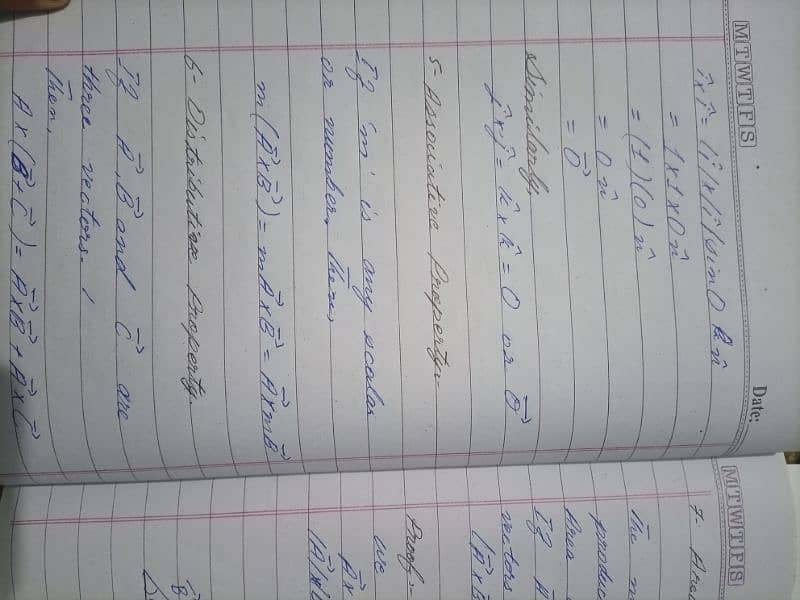 MTWTFS
Date:
î×î = |î|×|î| sin0 n̂
= 1×1×0 n̂
= (1)(0) n̂
= 0 n̂
= 0⃗
Similarly,
ĵ×ĵ = k̂×k̂ = 0 or 0⃗
5- Associative Property:-
If 'm' is any scalar
or number. Then,
m(A⃗×B⃗) = mA⃗×B⃗ = A⃗×mB⃗
6- Distributive Property.
If A⃗, B⃗ and C⃗ are
three vectors.
Then,
A⃗×(B⃗+C⃗) = A⃗×B⃗ + A⃗×C⃗
MTWTFS
7- Area
The m
produc
Area
If A
vectors
|A⃗×B
Proof:-
we
A⃗×
|A⃗|×|
B⃗